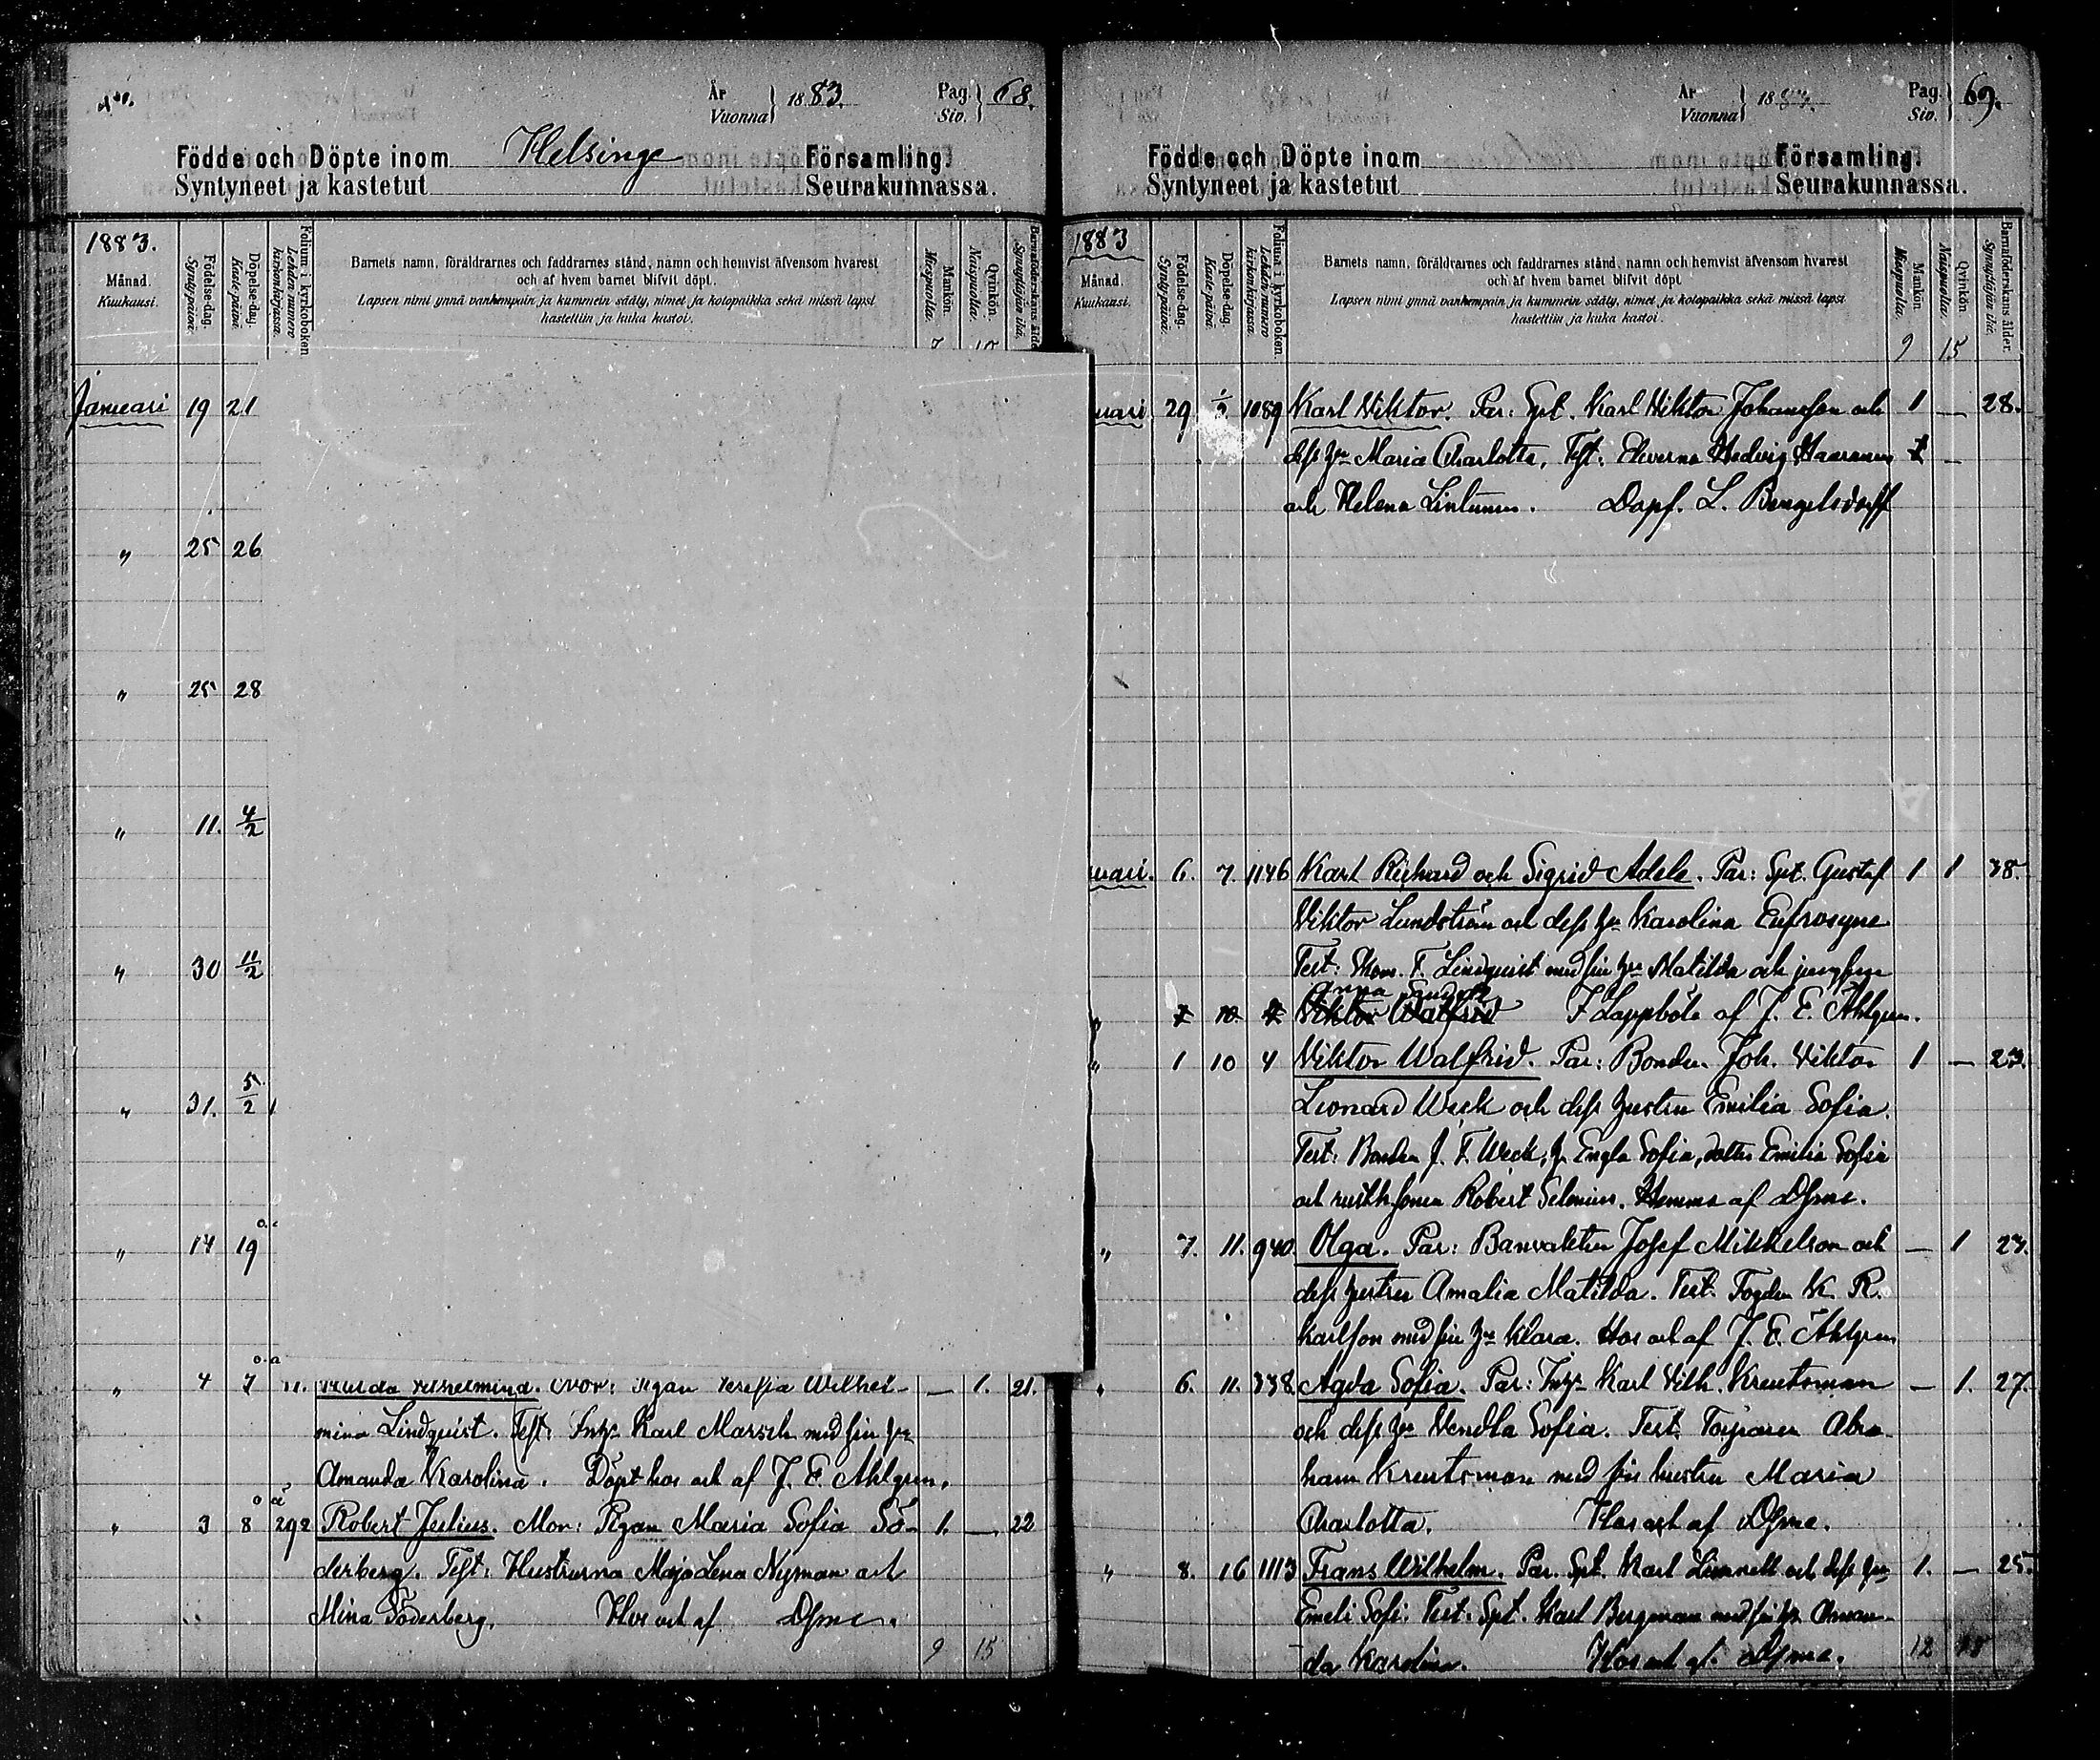 År
Vuonna } 1883. Pag. Siv. } 68.
Födde och Döpte inom Helsinge Församling.
Syntyneet ja kastetut Seurakunnassa.
1883.
Månad.
Kuukausi.
Födelse-dag.
Syntypäivä.
Döpelse-dag.
Kastepäivä
Folium i kyrkoboken
Lehden numero
kirkonkirjassa.
Barnets namn, föräldrarnes och faddrarnes stånd, namn och hemvist äfvensom hvarest
och af hvem barnet blifvit döpt.
Lapsen nimi ynnä vanhempain ja kummein sääty, nimet ja kotopaikka sekä missä lapsi
kastettiin ja kuka kastoi.
Mankön.
Miespuolia.
Qvinkön.
Naispuolia.
Barnaföderskans ålde
Synnyttäjän ikä.
Januari 19 21
" 25 26
" 25 28
" 11. 4/2
" 30 11/2
" 31. 5/2
" 14 19
" 4 7 Hulda Vilhelmina. Mor: Pigan Wilhel- — 1. 21.
mina Lindquist. Test: Inhs Karl Marsch med sin hu
Amanda Karolina. Döpt hos och af J. E. Ahlgren.
" 3 8 292 Robert Julius. Mor: Pigan Maria Sofia Sö- 1. — 22
derberg. Test: Hustrurna Maja Lena Nyman och
Mina Söderberg. Hos och af Dsme.
9 15
År
Vuonna } 18 Pag. Siv. } 69.
Födde och Döpte inom Församling.
Syntyneet ja kastetut Seurakunnassa.
1883
Månad.
Kuukausi.
Födelse-dag.
Syntypäivä.
Döpelse-dag.
Kastepäivä
Folium i kyrkoboken.
Lehden numero
kirkonkirjassa.
Barnets namn, föräldrarnes och faddrarnes stånd, namn och hemvist äfvensom hvarest
och af hvem barnet blifvit döpt.
Lapsen nimi ynnä vanhempain ja kummein sääty, nimet ja kotopaikka sekä missä lapsi
kastettiin ja kuka kastoi.
Mankön
Miespuolia.
Qvinkön.
Naispuolia.
Barnaföderskans ålder.
Synnyttäjän ikä.
9 15
uari 29 1089 Karl Viktor. Par: Spt. Karl Viktor Johansson och 1 — 28.
dess hu Maria Charlotta. Test: Eleverna Hedvig Haaranen
och Helena Lintunen. Döpt. L. Bengelsdorff
uari. 6. 7. 1146 Karl Richard och Sigrid Adele. Par: Spt. Gustaf 1 1 38.
Viktor Lundström och dess hu Karolina Eufrosyne
Test: Thom. F. Lindquist med sin hu Matilda och jungfrun
Anna
Viktor Walfrid I Lappböle af J. E. Ahlgren.
" 1 10 4 Viktor Walfrid. Par: Bonden Joh. Viktor 1 — 23.
Leonard Weck och dess hustru Emilia Sofia.
Test: Bonden J. F. Weck, h. Engla Sofia, dotter Emilia Sofia
och rusth.sonen Robert Selenius. Hemma af Dsme.
" 7. 11. 940. Olga. Par: Banvakten Josef Mikkelson och — 1 23.
dess hustru Amalia Matilda. Test. Fogden K. R.
Karlsson med sin hu Klara. Hos och af J. E. Ahlgren
" 6. 11. 338. Agda Sofia. Par: Inhs Karl Vilh. Kreutsman — 1. 27.
och dess hu Vendla Sofia. Test. Torparen Abra-
ham Kreutsman med sin hustru Maria
Charlotta. Hos och af Dsme.
" 8. 16 1113 Frans Wilhelm. Par. Spt. Karl Linnell och dess hu 1. — 25.
Emeli Sofi. Test: Spt. Karl Bergman med sin hu Aman-
da Karolina. Hos och af Dsme.
12